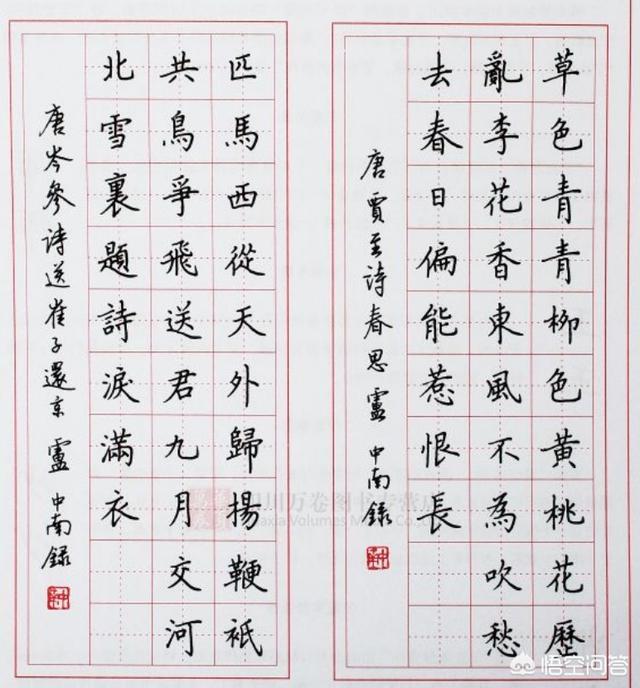 草色青青柳色黃桃花歷
亂李花香東風不為吹愁
去春日偏能惹恨長
唐賈至詩春思 盧中南錄
匹馬西從天外歸揚鞭衹
共鳥爭飛送君九月交河
北雪裏題詩淚滿衣
唐岑參詩送崔子還京 盧中南錄
四川万卷图书专营店
Volumes
悟空问答